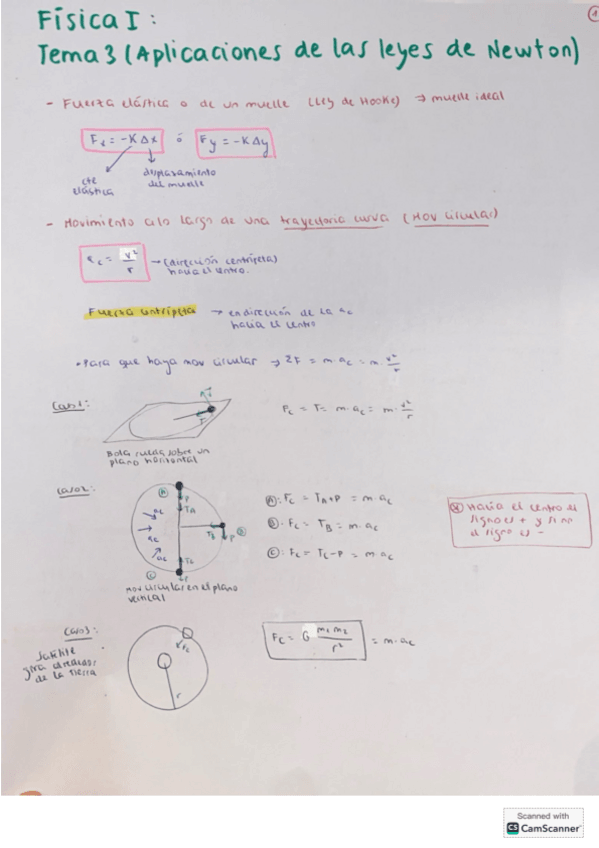 1
Física I:
Tema 3 (Aplicaciones de las leyes de Newton)
- Fuerza elástica o de un muelle (Ley de Hooke) → muelle ideal
Fx = -K Δx ó Fy = -K Δy
cte elástica
desplazamiento del muelle
- Movimiento a lo largo de una trayectoria curva (Mov circular)
ac = v²/r → (dirección centrípeta) hacia el centro.
Fuerza centrípeta → en dirección de la ac hacia el centro
• Para que haya mov circular → ΣF = m·ac = m·v²/r
Caso 1:
T
Fc = T = m·ac = m·v²/r
Bola rueda sobre un plano horizontal
Caso 2:
A P TA
ac ac ac
TB P B
Tc
C P
A: Fc = TA+P = m·ac
B: Fc = TB = m·ac
C: Fc = Tc-P = m·ac
Hacia el centro el signo es + y si no el signo es -
mov circular en el plano vertical
Caso 3:
Satélite gira alrededor de la tierra
Fc
r
Fc = G m1 m2/r² = m·ac
Scanned with
CS CamScanner